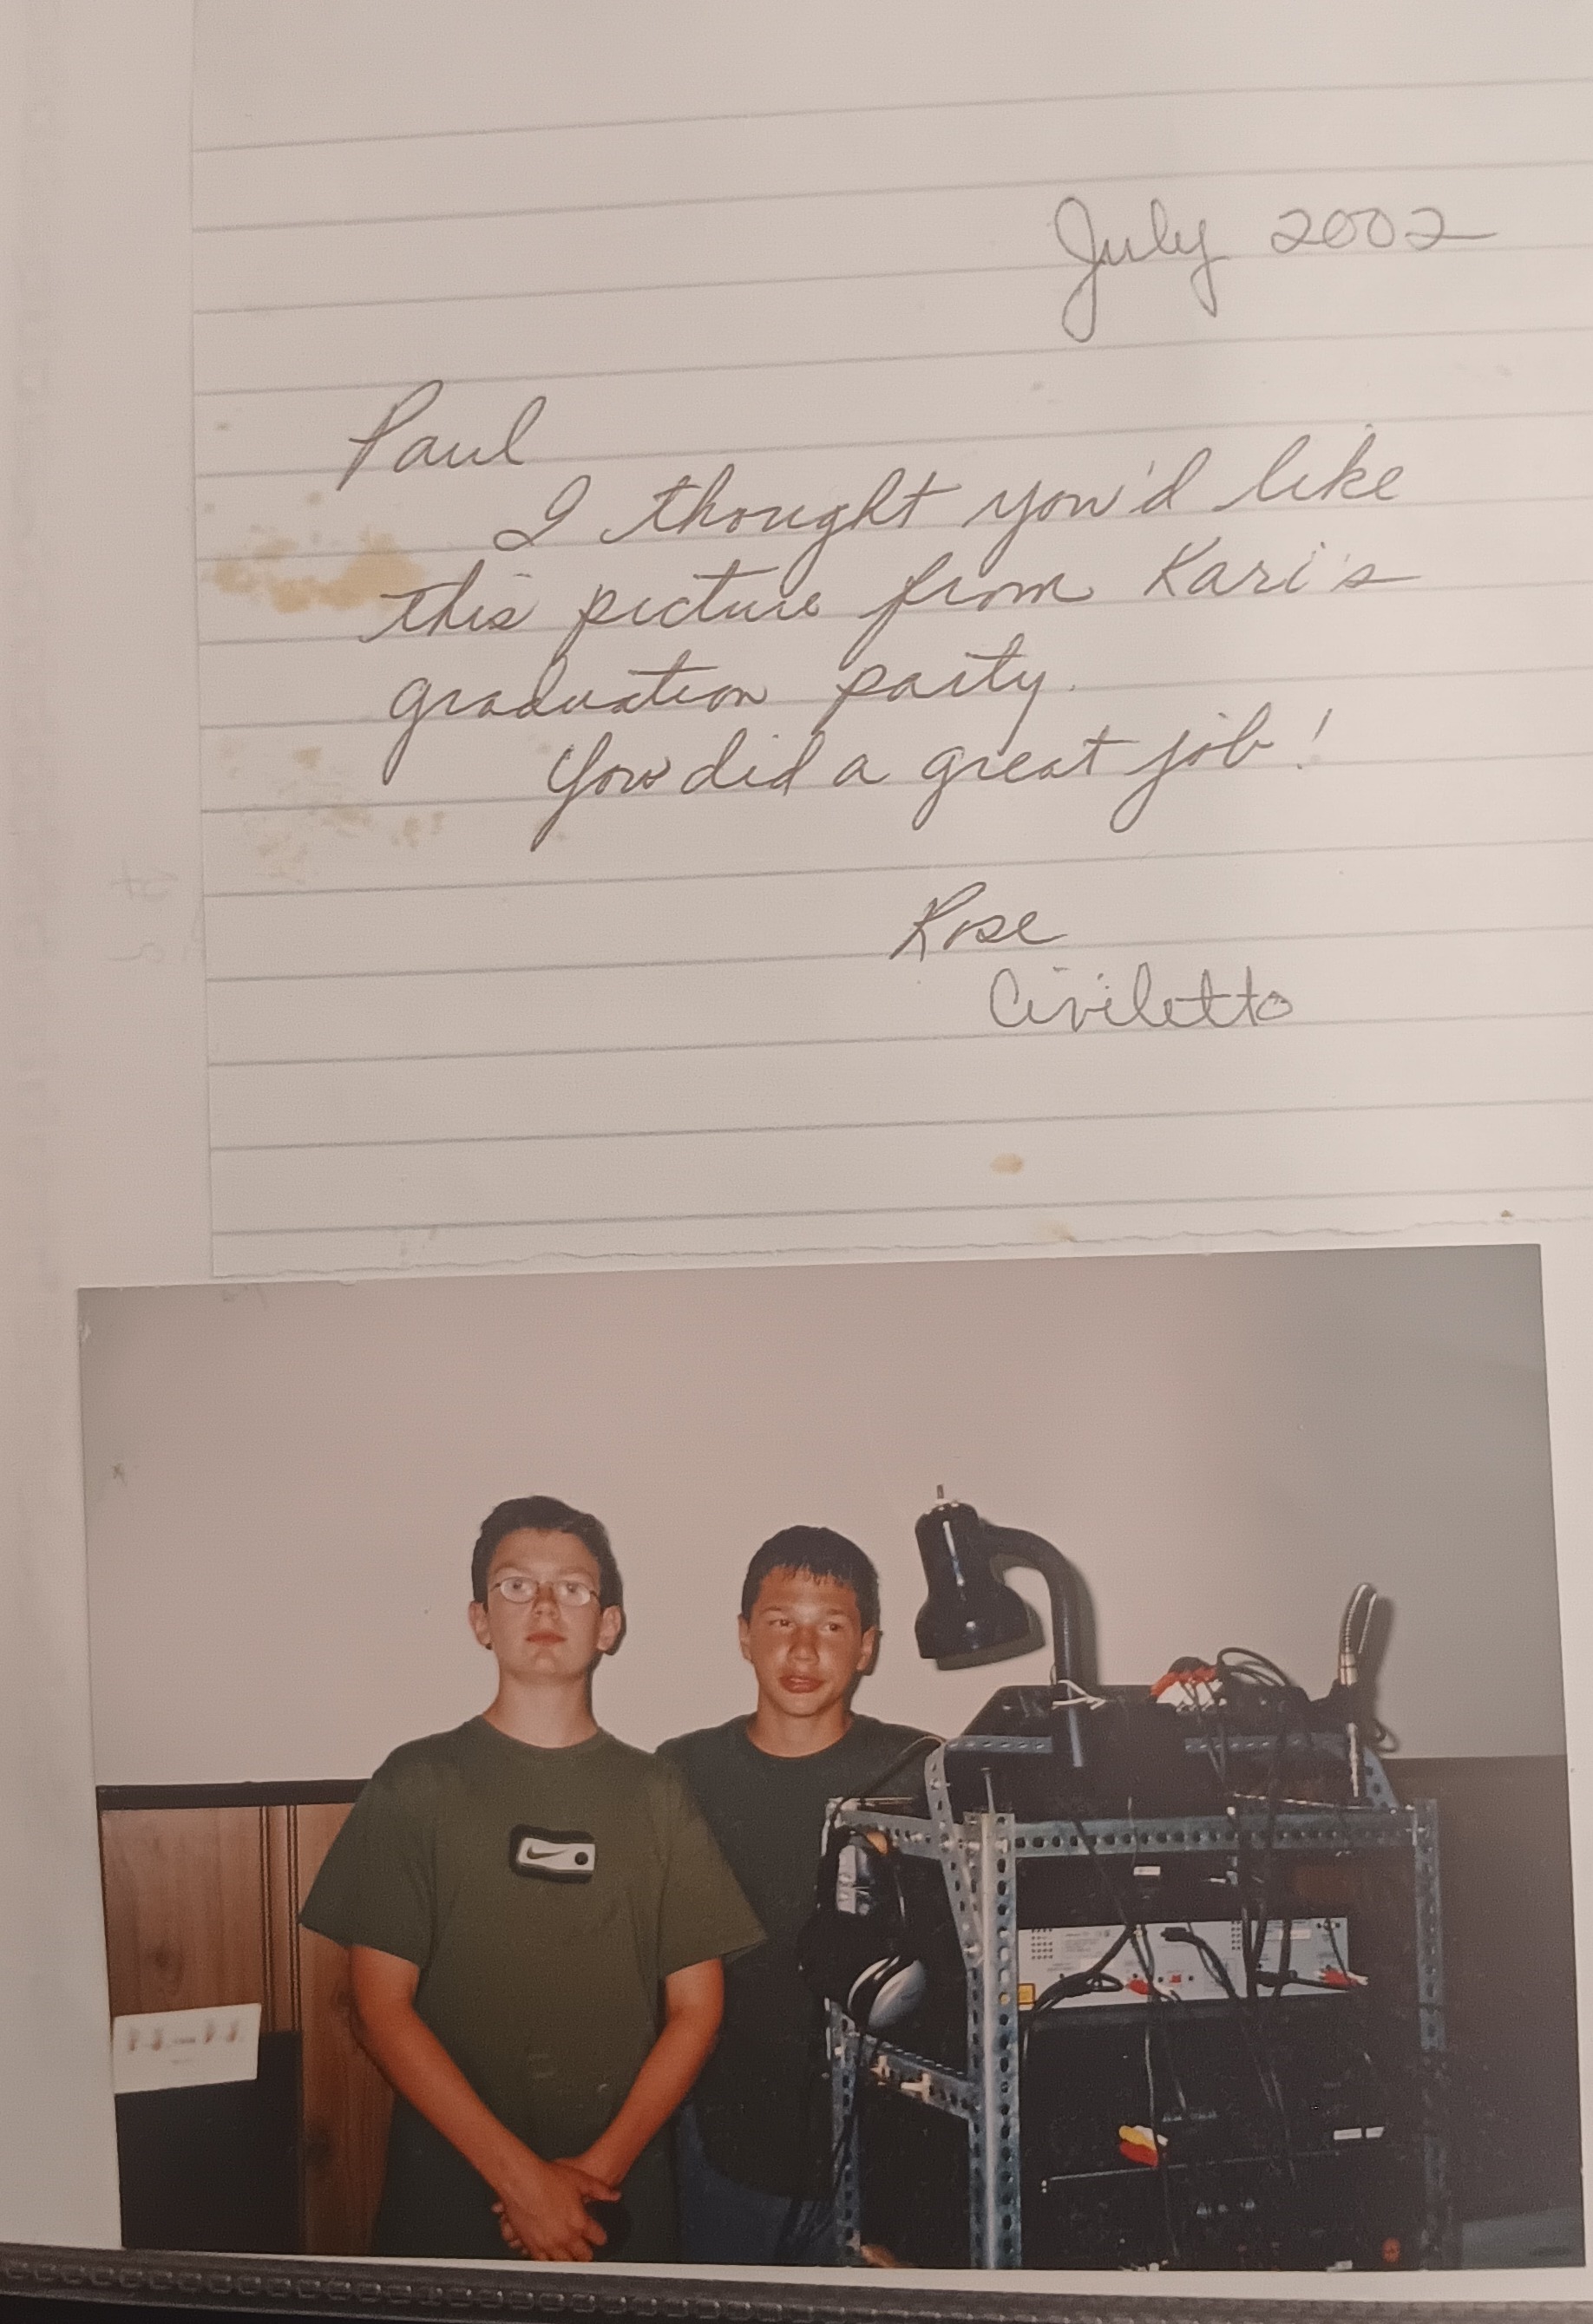 July 2002
Paul
I thought you'd like
this picture from Kari's
graduation party.
You did a great job!
Rose
Civiletto